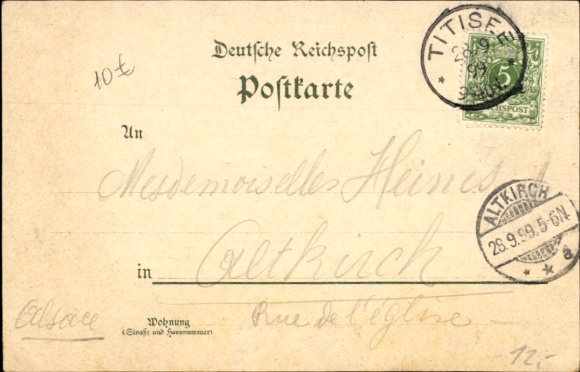 TITISEE
28 9
99
5
REICHSPOST
10€
Deutsche Reichspost
Postkarte
An
Mesdemoiselles Heines
ALTKIRCH
28.9.99. 5-6N
a
in Altkirch
Wohnung
(Straße und Hausnummer)
Rue de l'église
Alsace
12.-